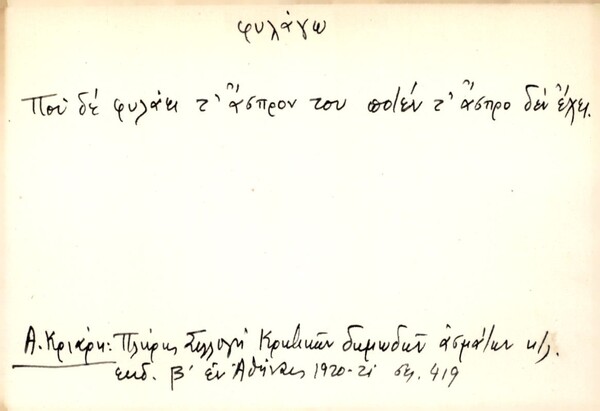 φυλάγω
Ποὺ δὲ φυλάει τ' ἄσπρον του ποτὲν τ' ἄσπρο δὲν ἔχει.
Α. Κριάρη: Πλήρης Συλλογὴ Κρητικῶν δημωδῶν ᾀσμάτων κ/λ.
ἐκδ. β' ἐν Ἀθήναις 1920-21 σελ. 419